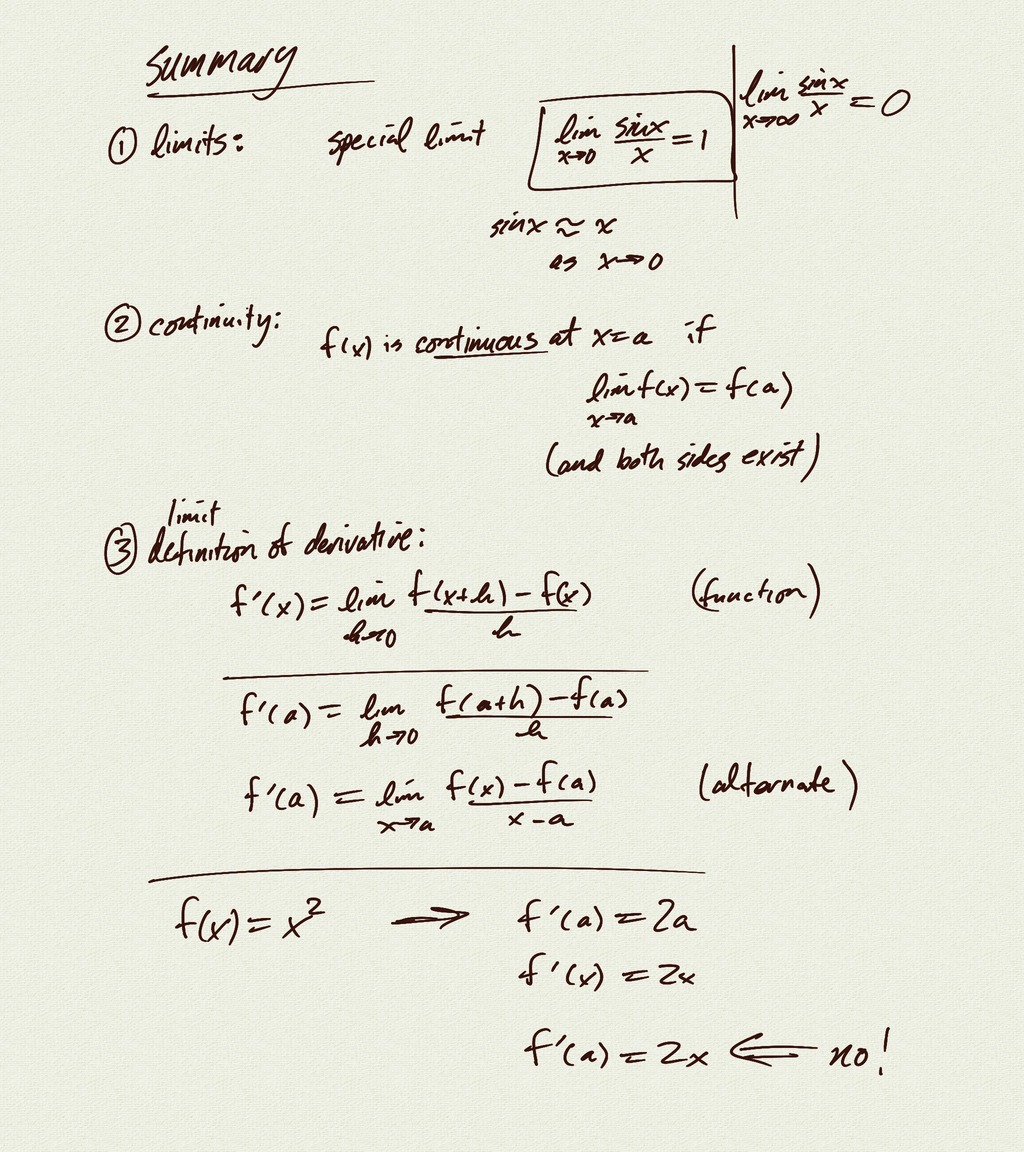 summary
① limits: special limit lim x→0 sinx/x = 1 lim x→∞ sinx/x = 0
sinx ≈ x
as x→0
② continuity:
f(x) is continuous at x=a if
lim x→a f(x) = f(a)
(and both sides exist)
limit
③ definition of derivative:
f'(x) = lim h→0 f(x+h) - f(x)/h (function)
f'(a) = lim h→0 f(a+h) - f(a)/h
f'(a) = lim x→a f(x) - f(a)/x-a (alternate)
f(x) = x² → f'(a) = 2a
f'(x) = 2x
f'(a) = 2x ⇐ no!